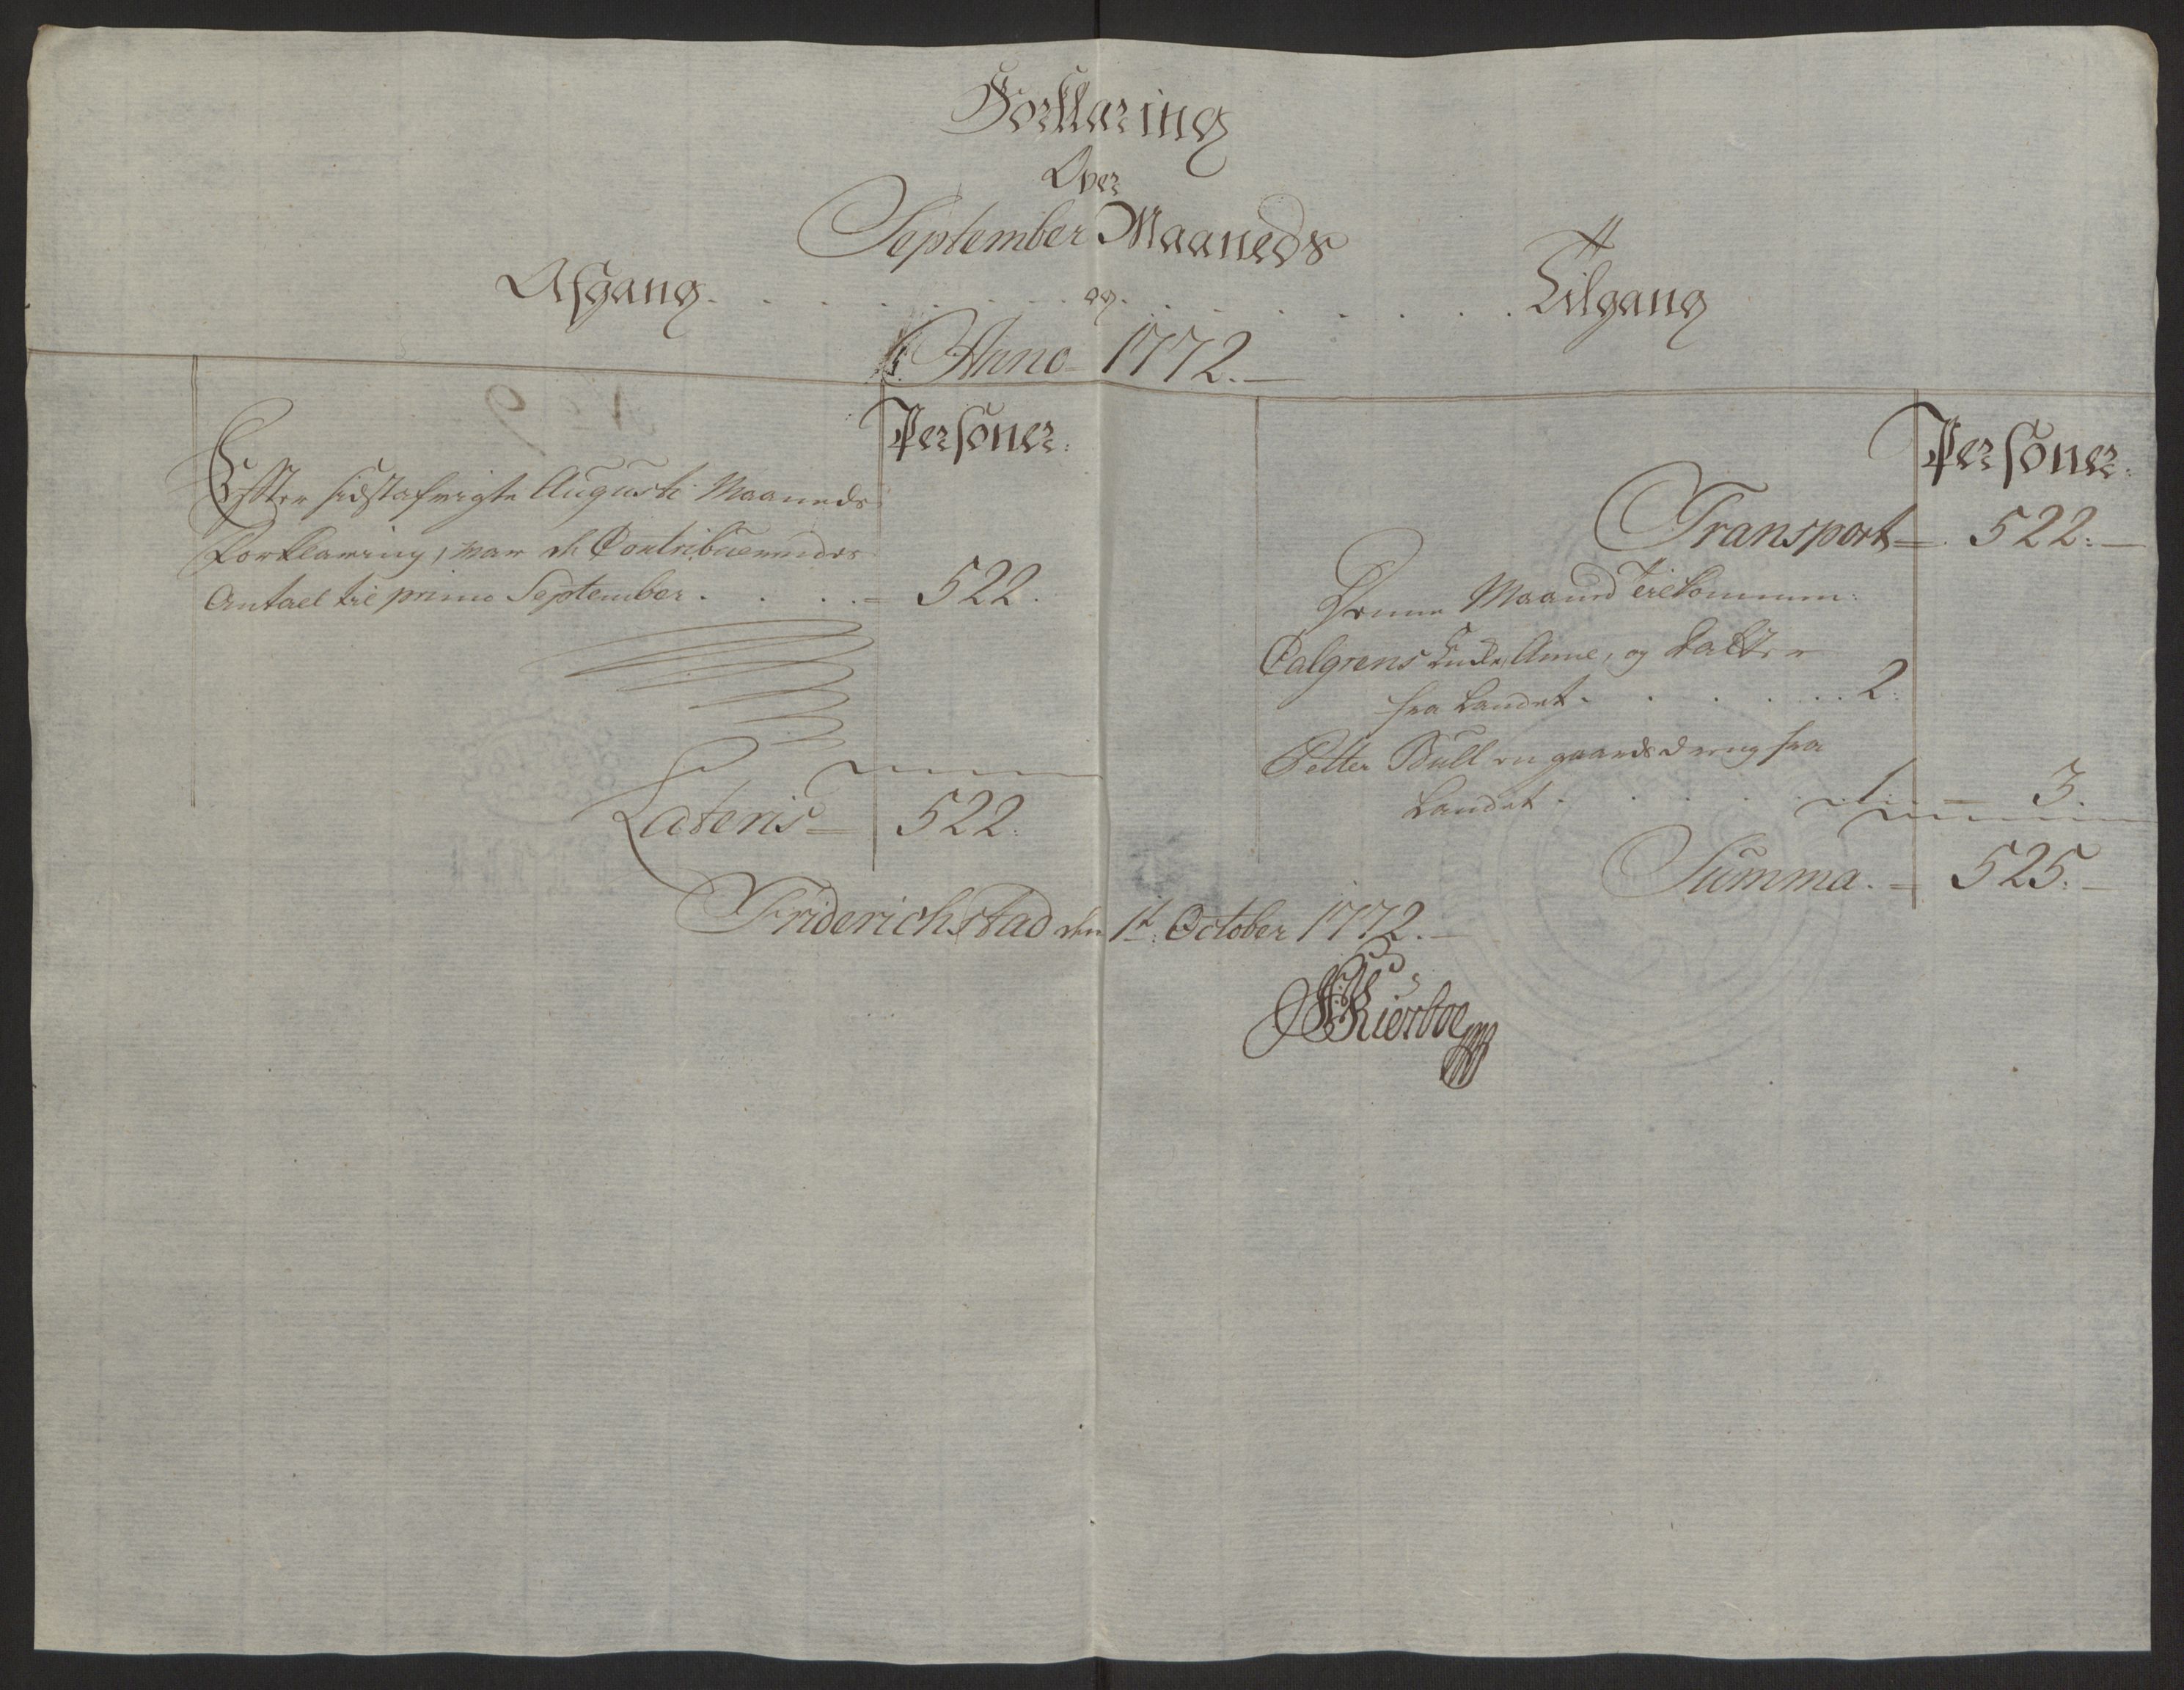 Forklaring
Over
September Maaneds
Afgang . . . . . . . og . . . . . . . Tilgang
Anno 1772.
Personer:
Effter sidstafvigte Augusti Maaneds
Forklaring, var de Contribuerendes
Antael til primo September . . . . = 522.
Lateris = 522.
Personer.
Transport = 522.
Denne Maaned tilkommen:
Calgrens Encke, Anne, og Datter
fra Landet . . . . . . 2.
Petter Bull en gaards dreng fra
Landet . . . . . 1. = 3.
Summa. = 525.
Friderichstad den 1t. October 1772.
Kierboe